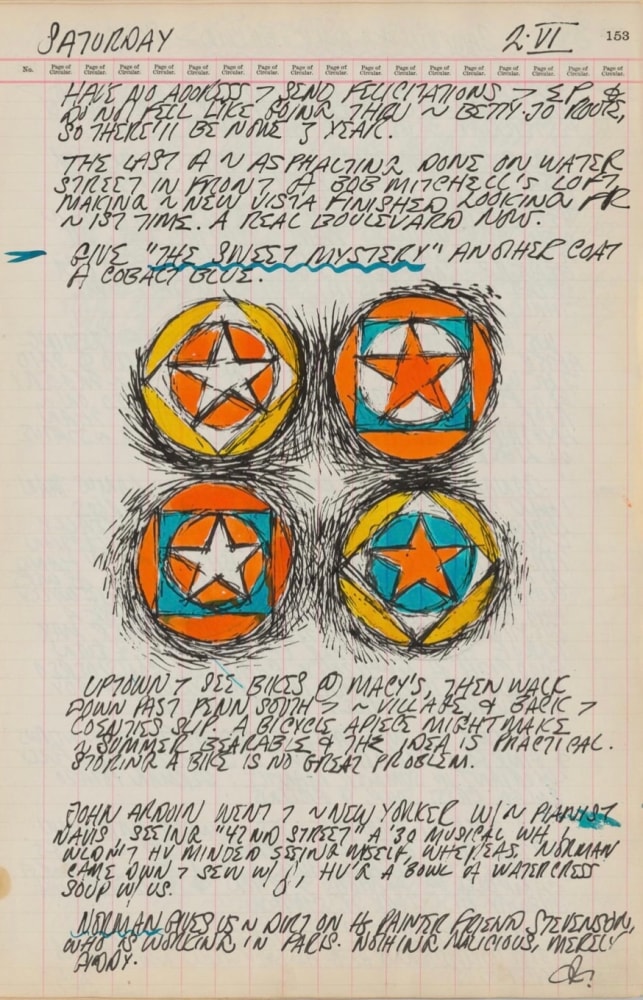 SATURDAY 2·VI 153
No. Page of Circular. Page of Circular. Page of Circular. Page of Circular. Page of Circular. Page of Circular. Page of Circular. Page of Circular. Page of Circular. Page of Circular. Page of Circular. Page of Circular. Page of Circular. Page of Circular. Page of Circular. Page of Circular.
HAVE NO ADDRESS 7 SEND FELICITATIONS 7 EP &
DO NOT FEEL LIKE GOING THRU ~ BETTY·JO ROUTE,
SO THERE'LL BE NONE 3 YEAR.
THE LAST A ~ ASPHALTING DONE ON WATER
STREET IN FRONT A BOB MITCHELL'S LOFT,
MAKING ~ NEW VISTA FINISHED LOOKING FR
~ 1ST TIME. A REAL BOULEVARD NOW.
GIVE "THE SWEET MYSTERY" ANOTHER COAT
A COBALT BLUE.
UPTOWN 7 SEE BIKES @ MACY'S, THEN WALK
DOWN PAST PENN SOUTH 7 ~ VILLAGE, & BACK 7
COENTIES SLIP. A BICYCLE APIECE MIGHT MAKE
~ SUMMER BEARABLE & THE IDEA IS PRACTICAL.
STORING A BIKE IS NO GREAT PROBLEM.
JOHN ARDUIN WENT 7 ~ NEW YORKER W/ ~ PIANIST
NAVIS, SEEING "42ND STREET" A '30 MUSICAL WH I
WLDN'T HV MINDED SEEING MYSELF, WHEREAS, NORMAN
CAME DWN 7 SEW W/ HV'G A BOWL A WATERCRESS
SOUP W/ US.
NORMAN GIVES US ~ DIRT ON PAINTER FRIEND STEVENSON,
WHO IS WORKING IN PARIS. NOTHING MALICIOUS, MERELY